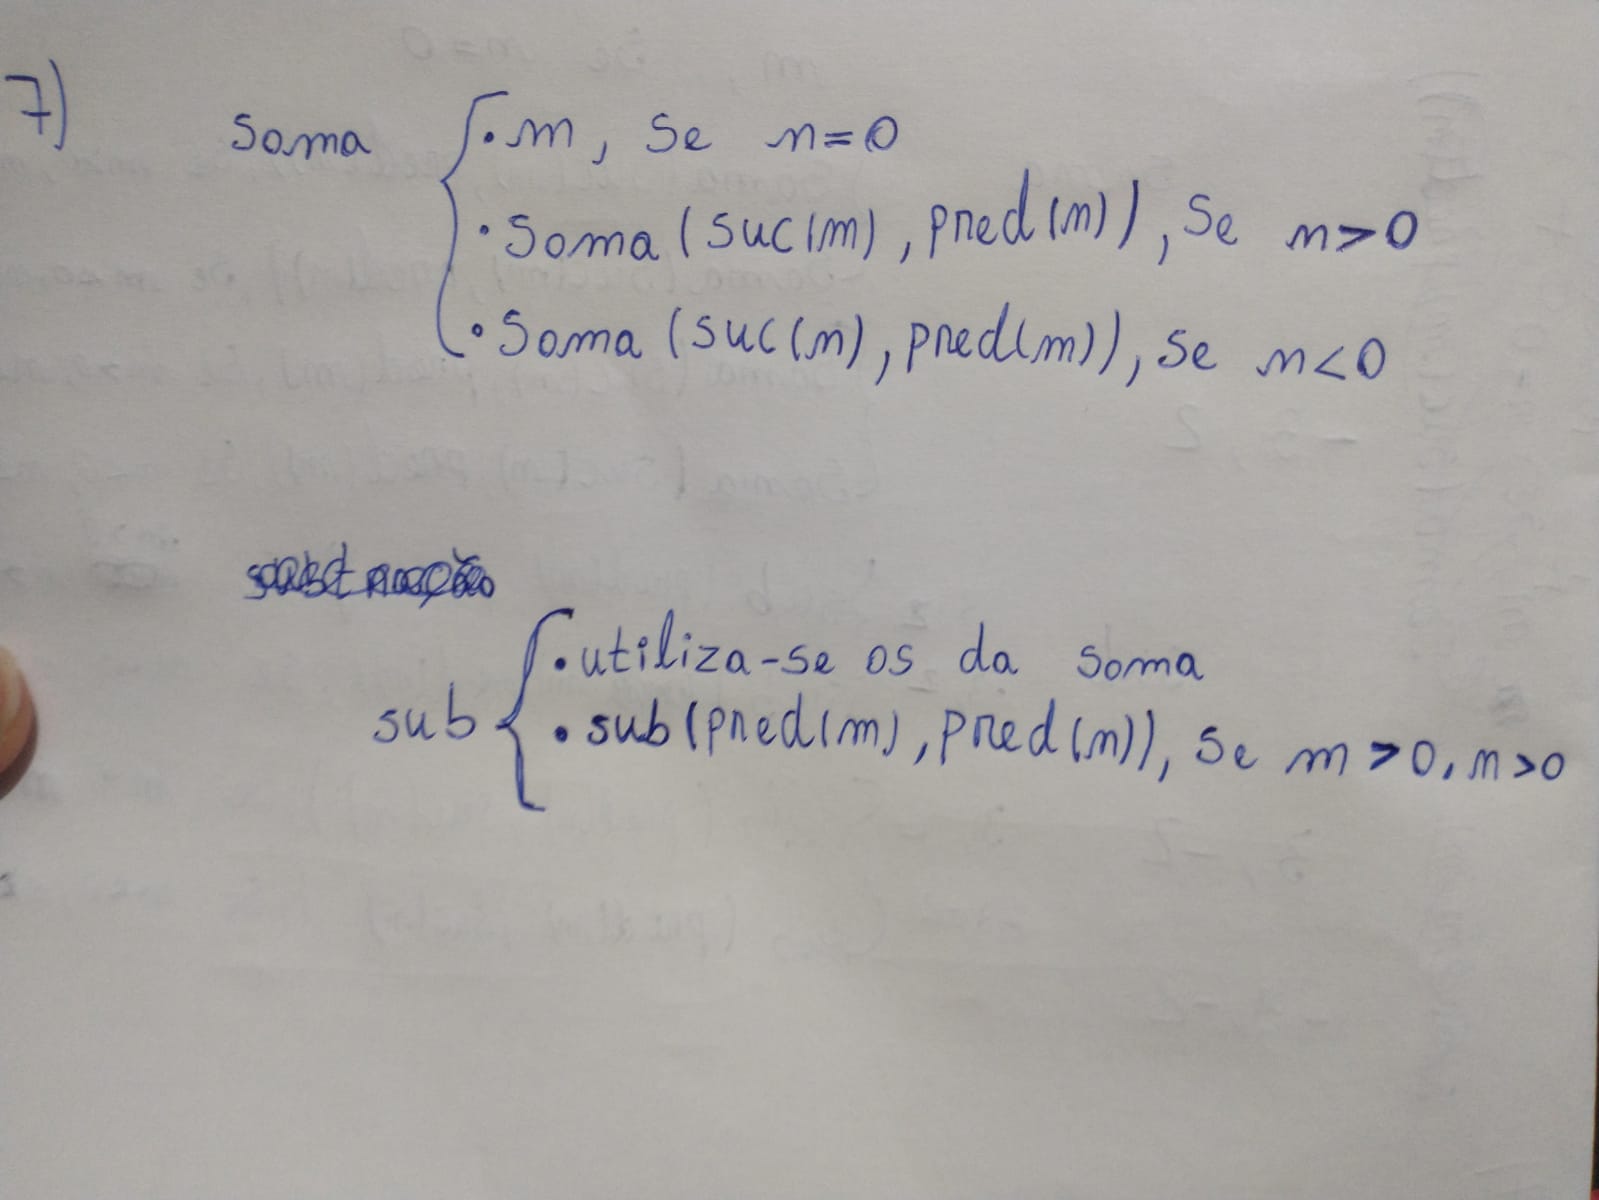 7)
Soma { • m, Se n=0
• Soma (suc(m), pred(n)), Se n>0
• Soma (suc(n), pred(m)), Se n<0
sub { • utiliza-se os da soma
• sub(pred(m), pred(n)), Se m>0, n>0